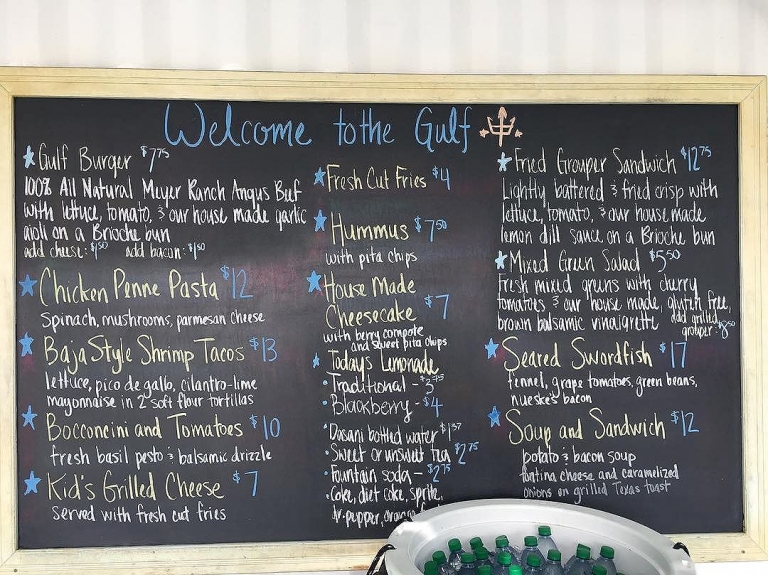 Welcome to the Gulf
Gulf Burger $7.75
100% All Natural Meyer Ranch Angus Beef
with lettuce, tomato, & our house made garlic
aioli on a Brioche bun
add cheese: $1.50 add bacon: $1.50
Chicken Penne Pasta $12
Spinach, mushrooms, parmesan cheese
Baja Style Shrimp Tacos $13
lettuce, pico de gallo, cilantro-lime
mayonnaise in 2 soft flour tortillas
Bocconcini and Tomatoes $10
fresh basil pesto & balsamic drizzle
Kid's Grilled Cheese $7
Served with fresh cut fries
Fresh Cut Fries $4
Hummus $7.50
with pita chips
House Made
Cheesecake $7
with berry compote
and sweet pita chips
Todays Lemonade
• Traditional -
• Blackberry - $4
• Dasani bottled water
• Sweet or unsweet tea $2.75
• Fountain soda - $2.75
• Coke, diet coke, sprite,
dr. pepper,
Fried Grouper Sandwich $12.75
Lightly battered & fried crisp with
lettuce, tomato, & our house made
lemon dill sauce on a Brioche bun
Mixed Green Salad $5.50
Fresh mixed greens with cherry
tomatoes & our house made, gluten free,
brown balsamic vinaigrette add grilled
grouper:
Seared Swordfish $17
fennel, grape tomatoes, green beans,
nueske's bacon
Soup and Sandwich $12
potato & bacon soup
fontina cheese and caramelized
onions on grilled Texas toast